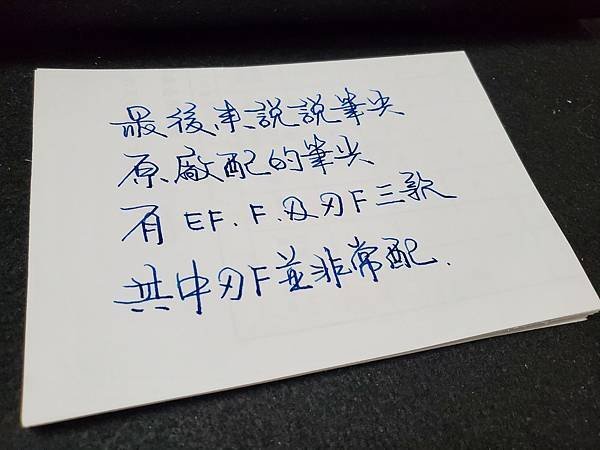 最後來說說筆尖
原廠配的筆尖
有 EF. F. 及刃F三款
其中刃F並非常配.